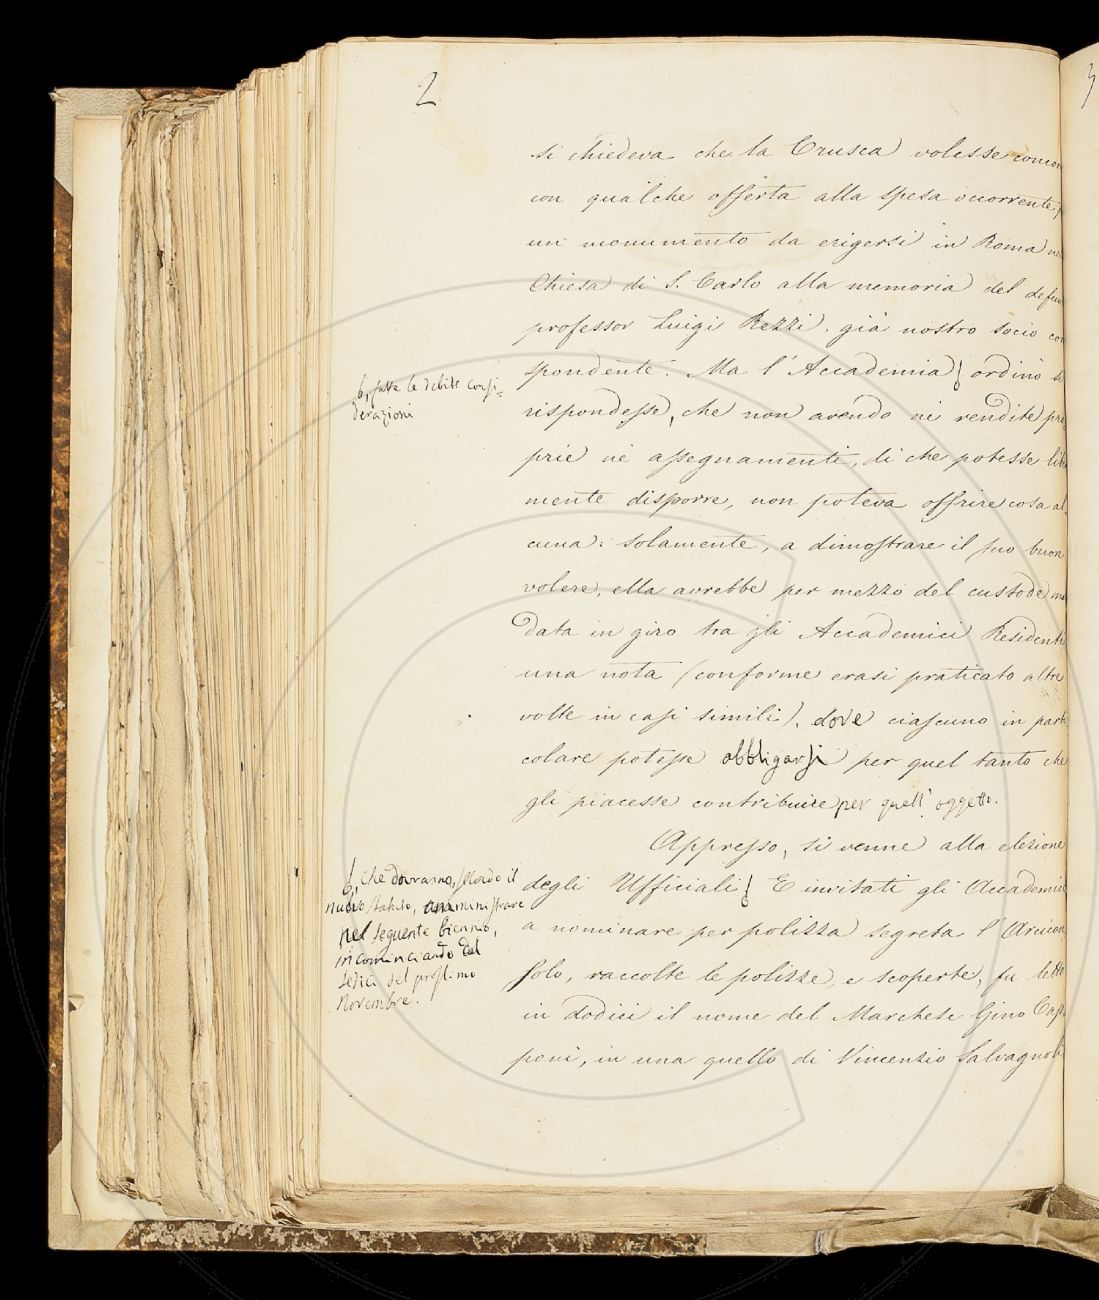 2
3
si chiedeva che la Crusca volesse concor
con qualche offerta alla spesa ocorrente
un monumento da erigersi in Roma ne
Chiesa di S. Carlo alla memoria del defun
professor Luigi Rezzi, già nostro socio cor
spondente. Ma l'Accademia ordinò si
6, fatte le debite consi=
derazioni
rispondesse, che non avendo nè rendite pro
prie nè assegnamenti, di che potesse libe
mente disporre, non poteva offrire cosa al=
cuna: solamente, a dimostrare il suo buon
volere, ella avrebbe per mezzo del custode ma
data in giro tra gli Accademici Residenti
una nota (conforme erasi praticato altre
volte in casi simili), dove ciascuno in parti
colare potesse obbligarsi per quel tanto che
gli piacesse contribuire per quell'oggetto.
Appresso, si venne alla elezione
degli Ufficiali E invitati gli Accademici
6, che dovranno, secondo il
nuovo statuto, amministrare
nel seguente biennio,
incominciando dal
sedici del prossimo
Novembre.
a nominare per polizza segreta l'Arcicon
solo, raccolte le polizze, e scoperte, fu letto
in dodici il nome del Marchese Gino Cap
poni, in una quello di Vincenzio Salvagnoli